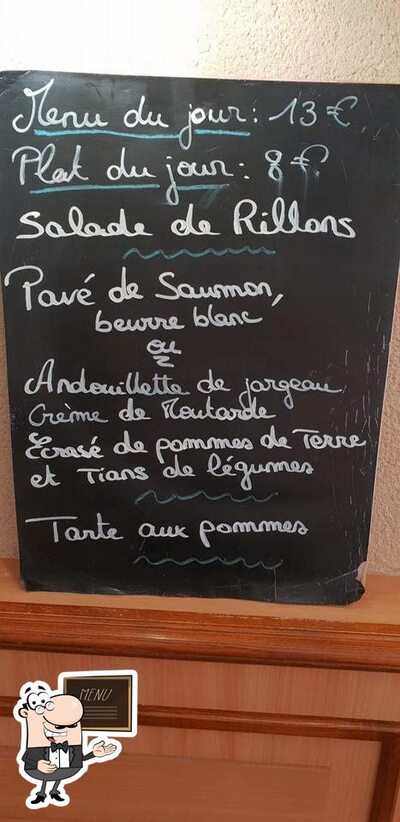 Menu du jour : 13 €
Plat du jour : 8 €
Salade de Rillons
Pavé de Saumon,
beurre blanc
ou
Andouillette de jargeau
Crème de Moutarde
Ecrasé de pommes de Terre
et Tians de légumes
Tarte aux pommes
MENU